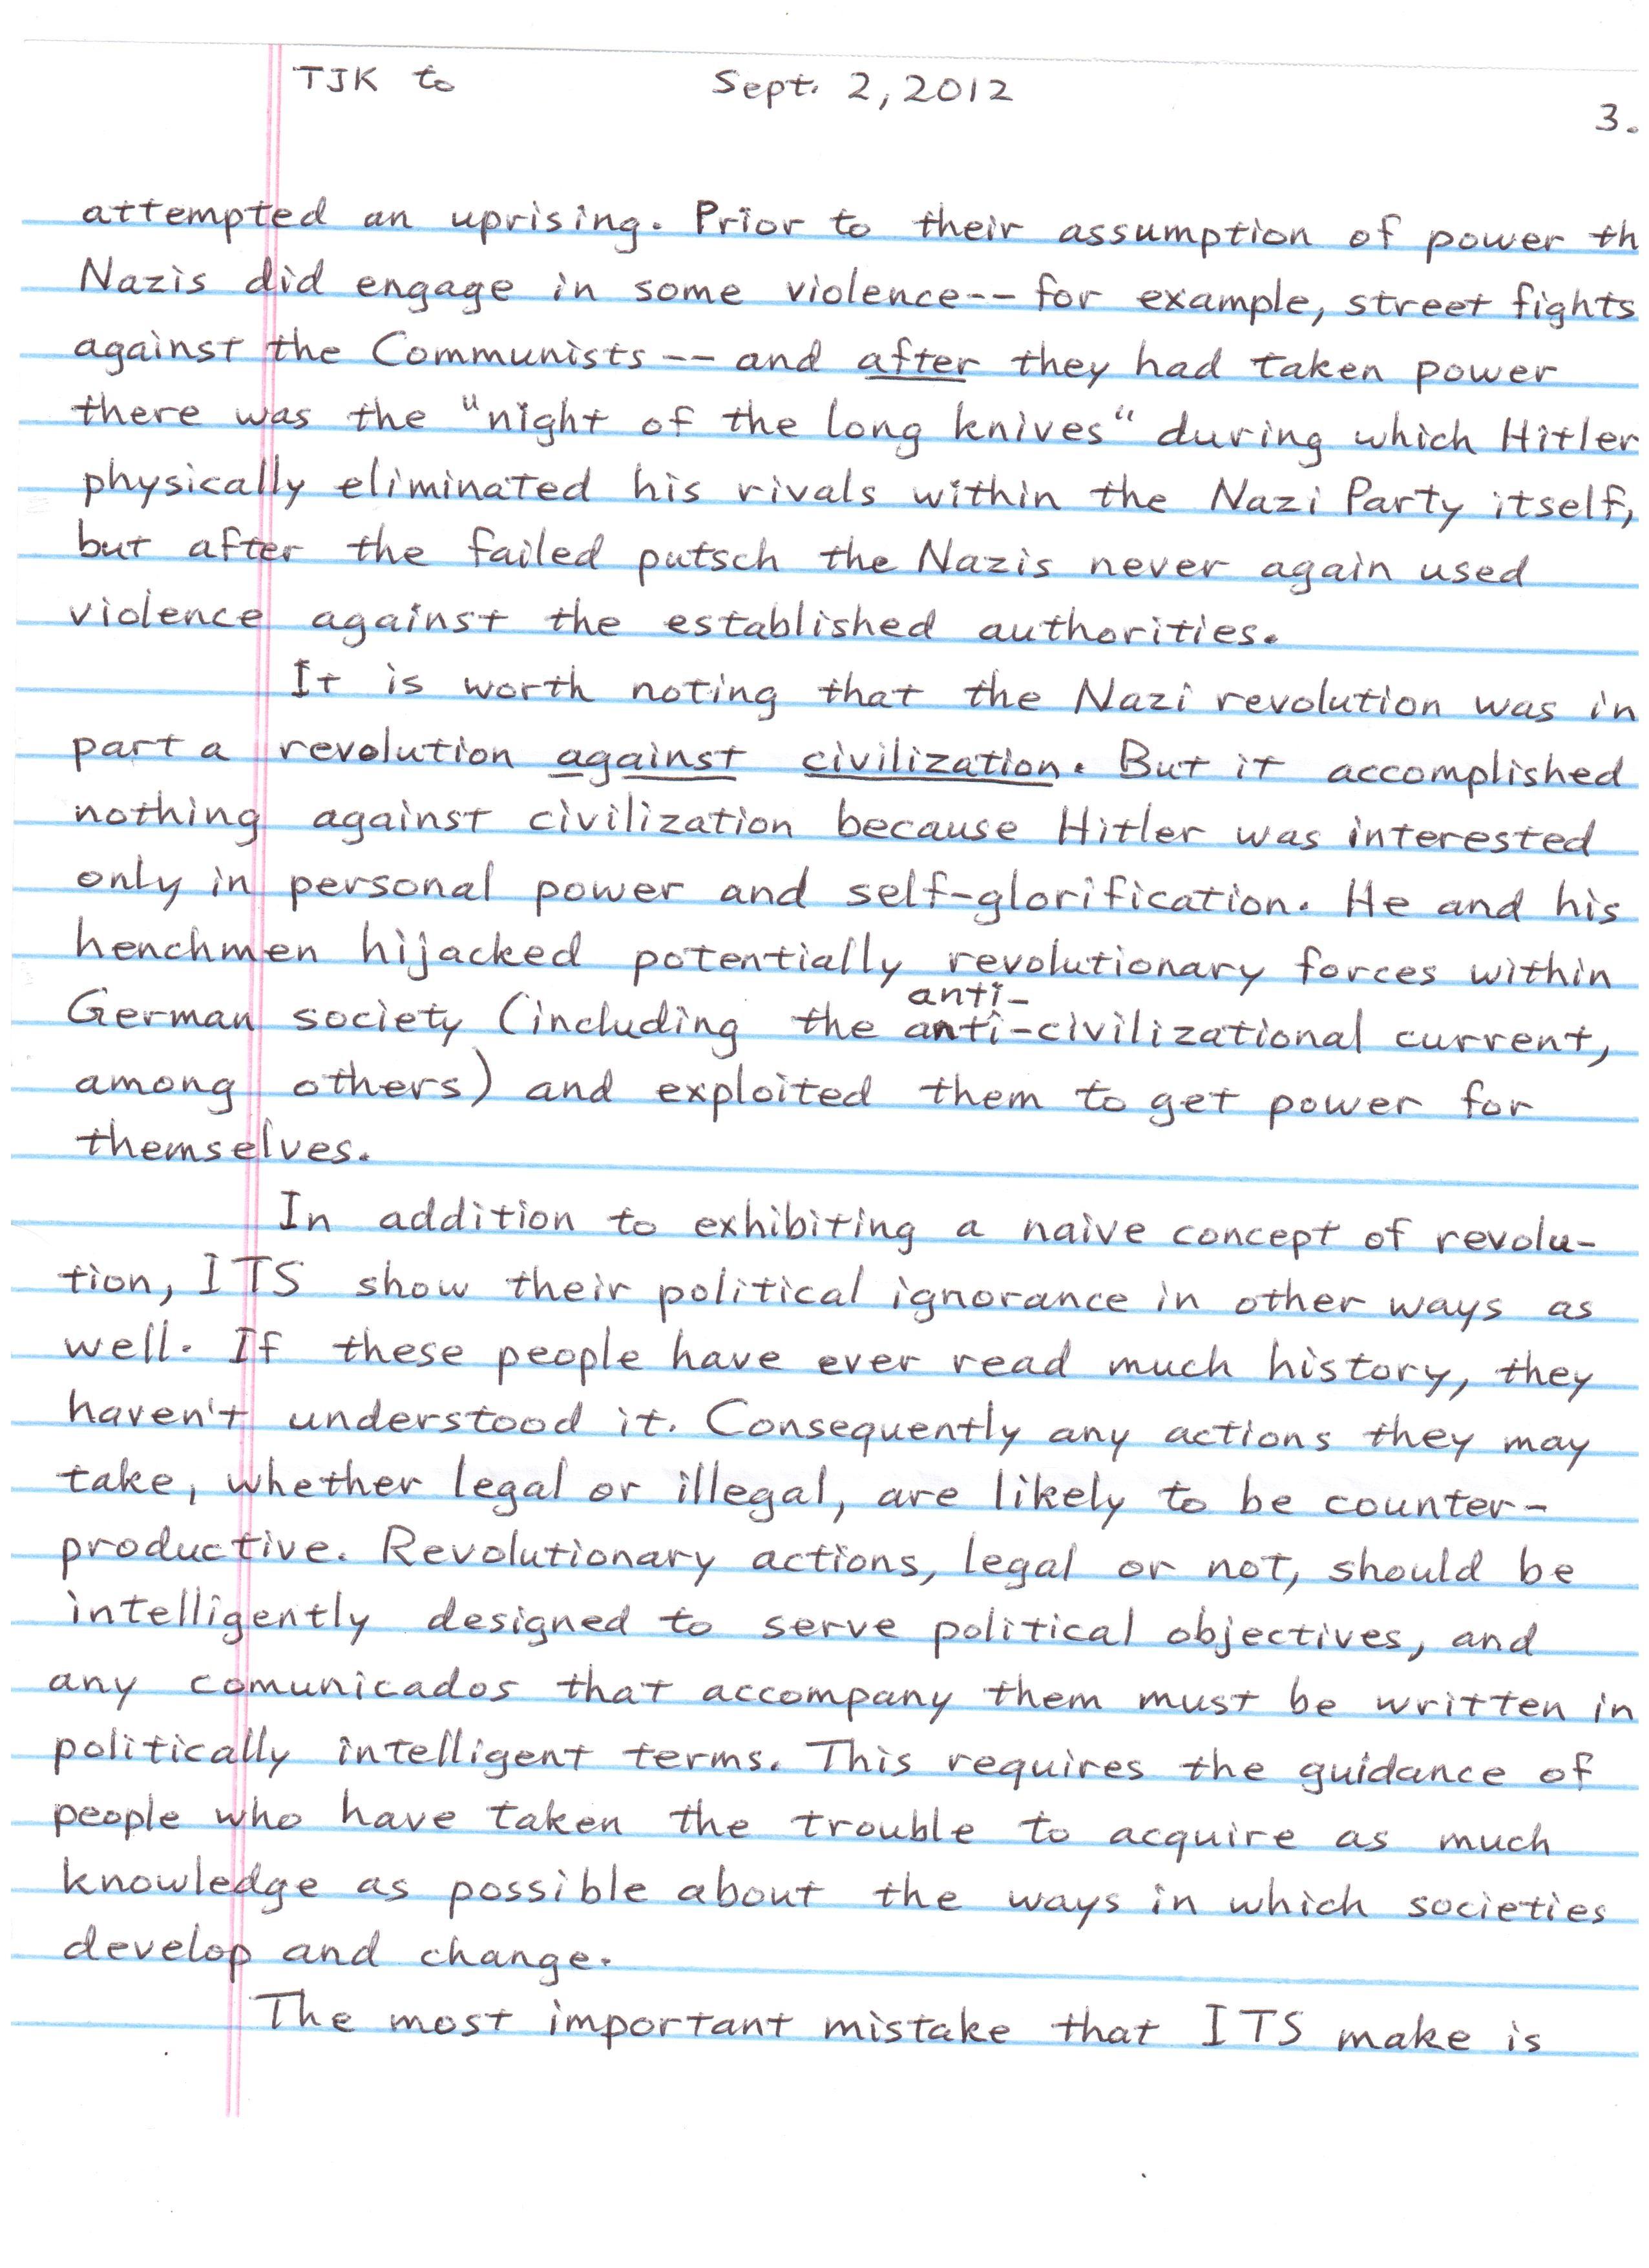 TJK to Sept. 2, 2012
3.
attempted an uprising. Prior to their assumption of power th
Nazis did engage in some violence-- for example, street fights
against the Communists -- and after they had taken power
there was the "night of the long knives" during which Hitler
physically eliminated his rivals within the Nazi Party itself,
but after the failed putsch the Nazis never again used
violence against the established authorities.
It is worth noting that the Nazi revolution was in
part a revolution against civilization. But it accomplished
nothing against civilization because Hitler was interested
only in personal power and self-glorification. He and his
henchmen hijacked potentially revolutionary forces within
anti-
German society (including the anti-civilizational current,
among others) and exploited them to get power for
themselves.
In addition to exhibiting a naive concept of revolu-
tion, ITS show their political ignorance in other ways as
well. If these people have ever read much history, they
haven't understood it. Consequently any actions they may
take, whether legal or illegal, are likely to be counter-
productive. Revolutionary actions, legal or not, should be
intelligently designed to serve political objectives, and
any comunicados that accompany them must be written in
politically intelligent terms. This requires the guidance of
people who have taken the trouble to acquire as much
knowledge as possible about the ways in which societies
develop and change.
The most important mistake that ITS make is